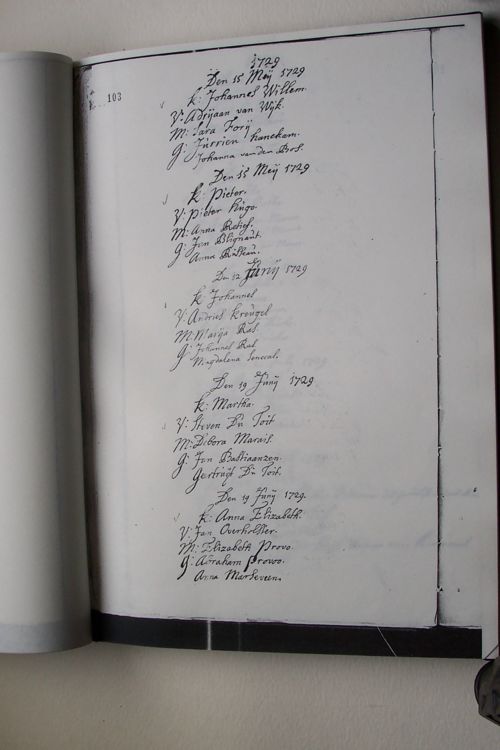 103
1729
Den 15 Meÿ 1729
K: Johannes Willem.
V: Adrÿaan van Wÿk.
M: Sara Forÿ
G: Jurrien hanekam.
Johanna van den Bos.
Den 15 Meÿ 1729
K: Pieter.
V: Pieter hugo.
M: Anna Retief.
G: Jan Blignaut.
Anna
Den 12 Junÿ 1729
K: Johannes
V: Andries kreugel
M: Marÿa Ras.
G: Johannes Ras
Magdalena Senecal.
Den 19 Junÿ 1729
K: Martha.
V: Steven Du Toit
M: Debora Marais.
G: Jan Bastiaanzen.
Gertruÿt Du Toit.
Den 19 Junÿ 1729.
K: Anna Elizabeth.
V: Jan Overholster.
M: Elizabeth Provo.
G: Abraham Provoo.
Anna Marseveen.